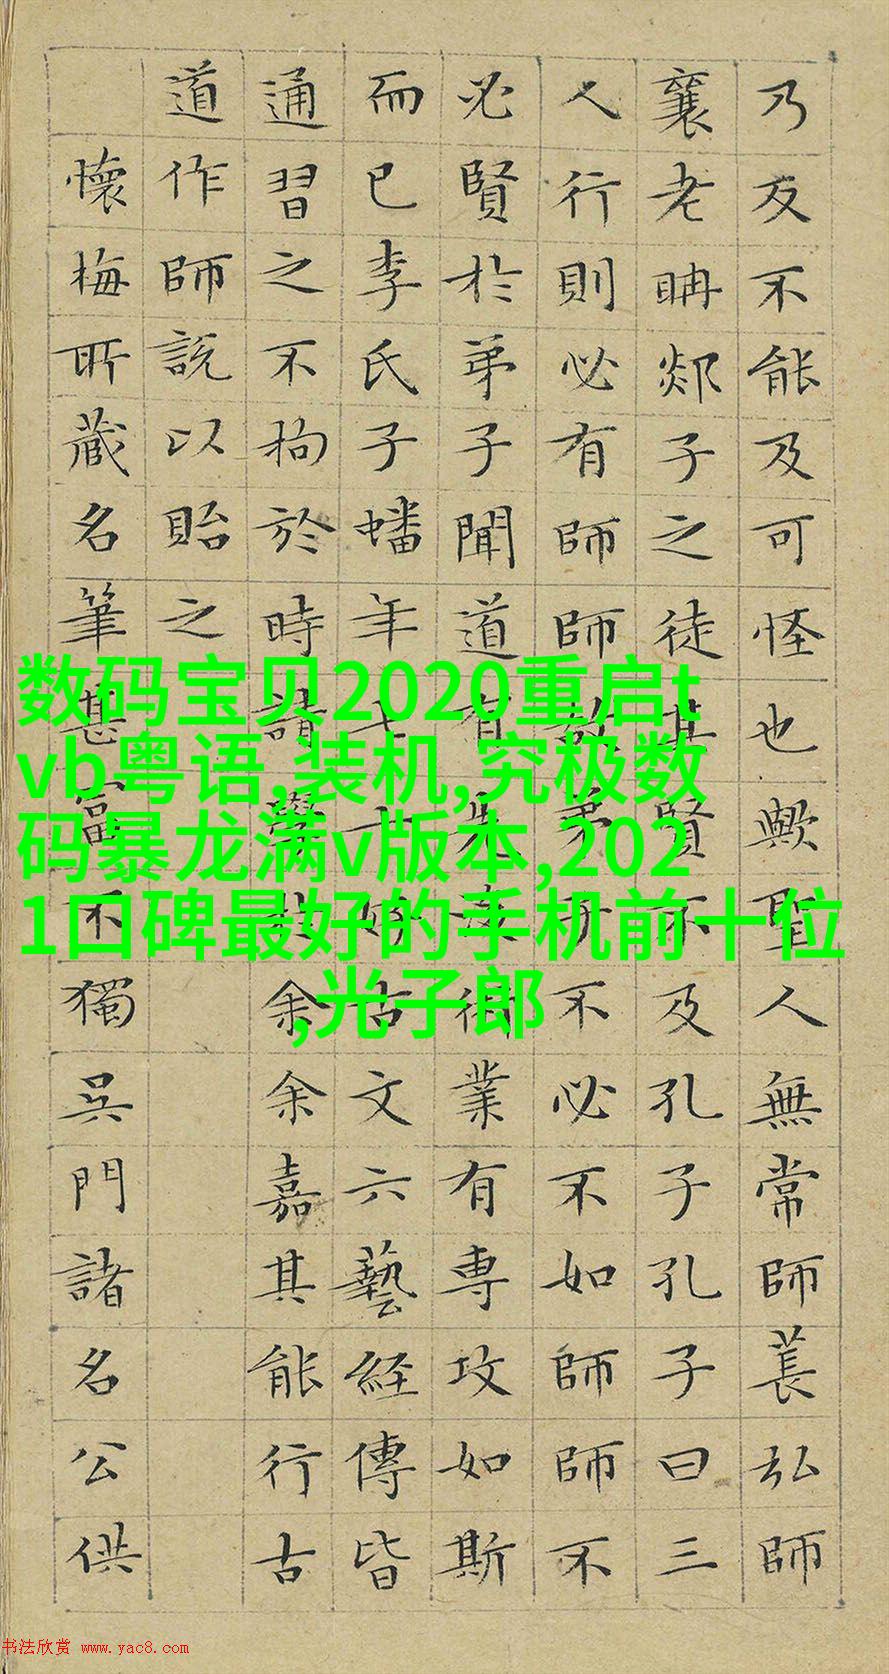 乃反不能及可怪也歟聖人無常師萇弘師
襄老聃郯子之徒其賢不及孔子孔子曰三
人行則必有師師故弟子不必不如師師不
必賢於弟子聞道有先後術業有專攻如斯
而已李氏子蟠年七十好古文六藝経傳皆
通習之不拘於時請學於余余嘉其能行古
道作師說以貽之
懷梅所藏名筆甚富不獨吳門諸名公供
数码宝贝2020重启t
vb粤语,装机,究极数
码暴龙满v版本,202
1口碑最好的手机前十位
,光子郎
书法欣赏 www.yac8.com